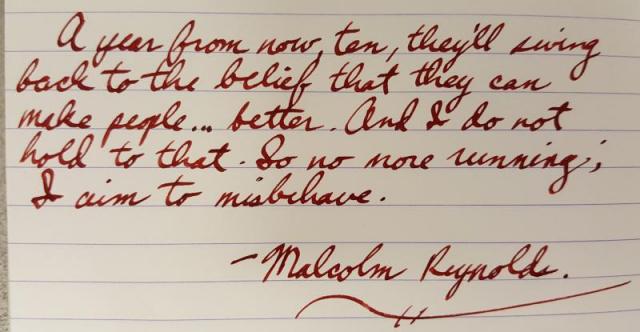 A year from now, ten, they'll swing
back to the belief that they can
make people... better. And I do not
hold to that. So no more running;
I aim to misbehave.
- Malcolm Reynolds.